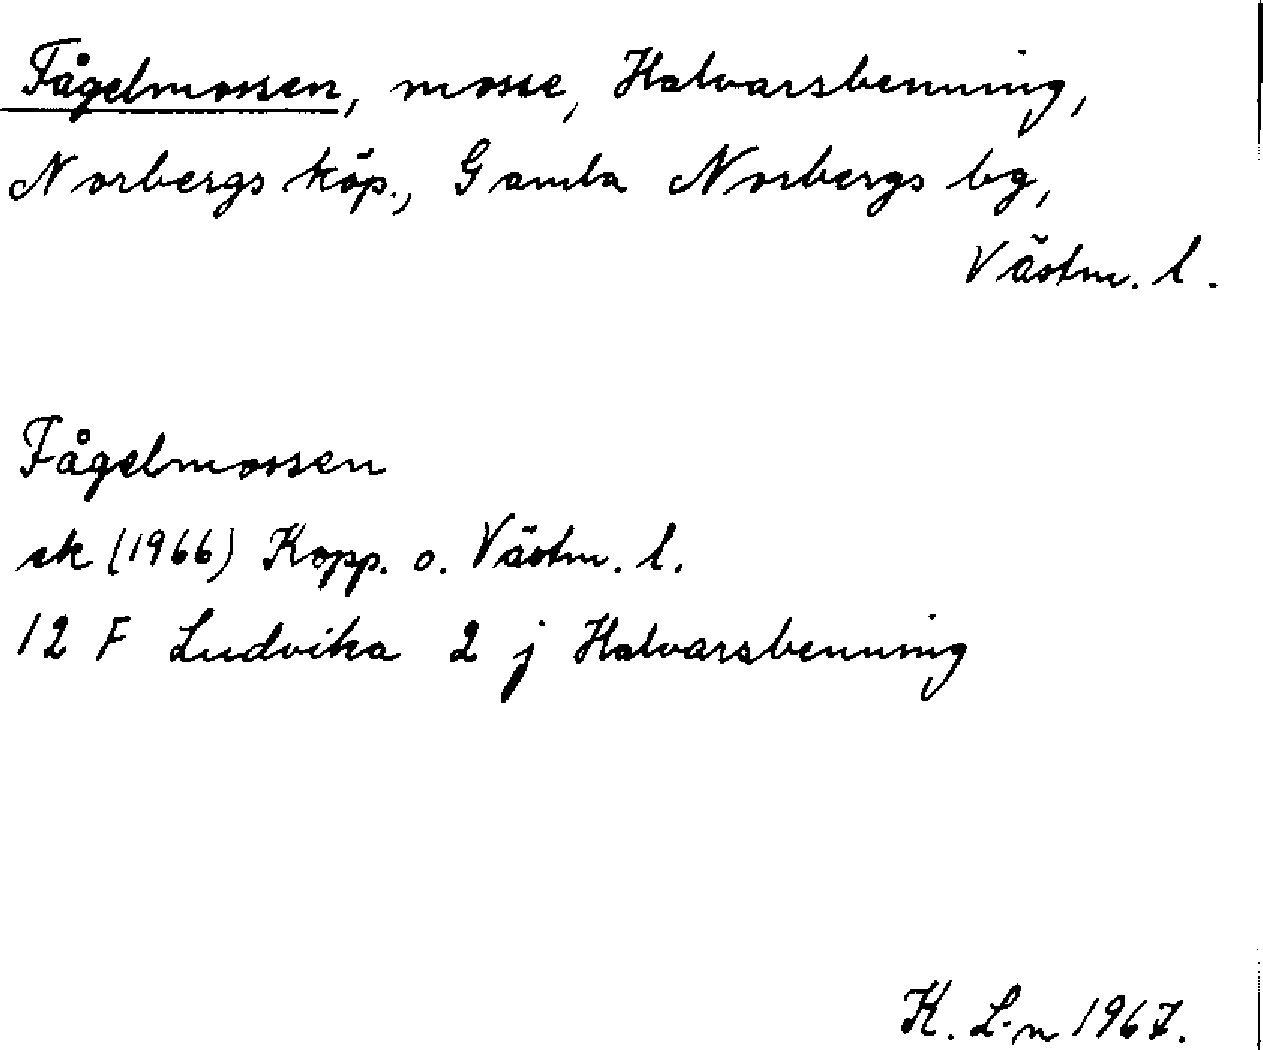 Fågelmossen, mosse, Halvarsbenning,
Norbergs köp., Gamla Norbergs bg,
Västm. l.
Fågelmossen
ek (1966) Kopp. o. Västm. l.
12 F Ludvika 2 j Halvarsbenning
K. L-n 1967.